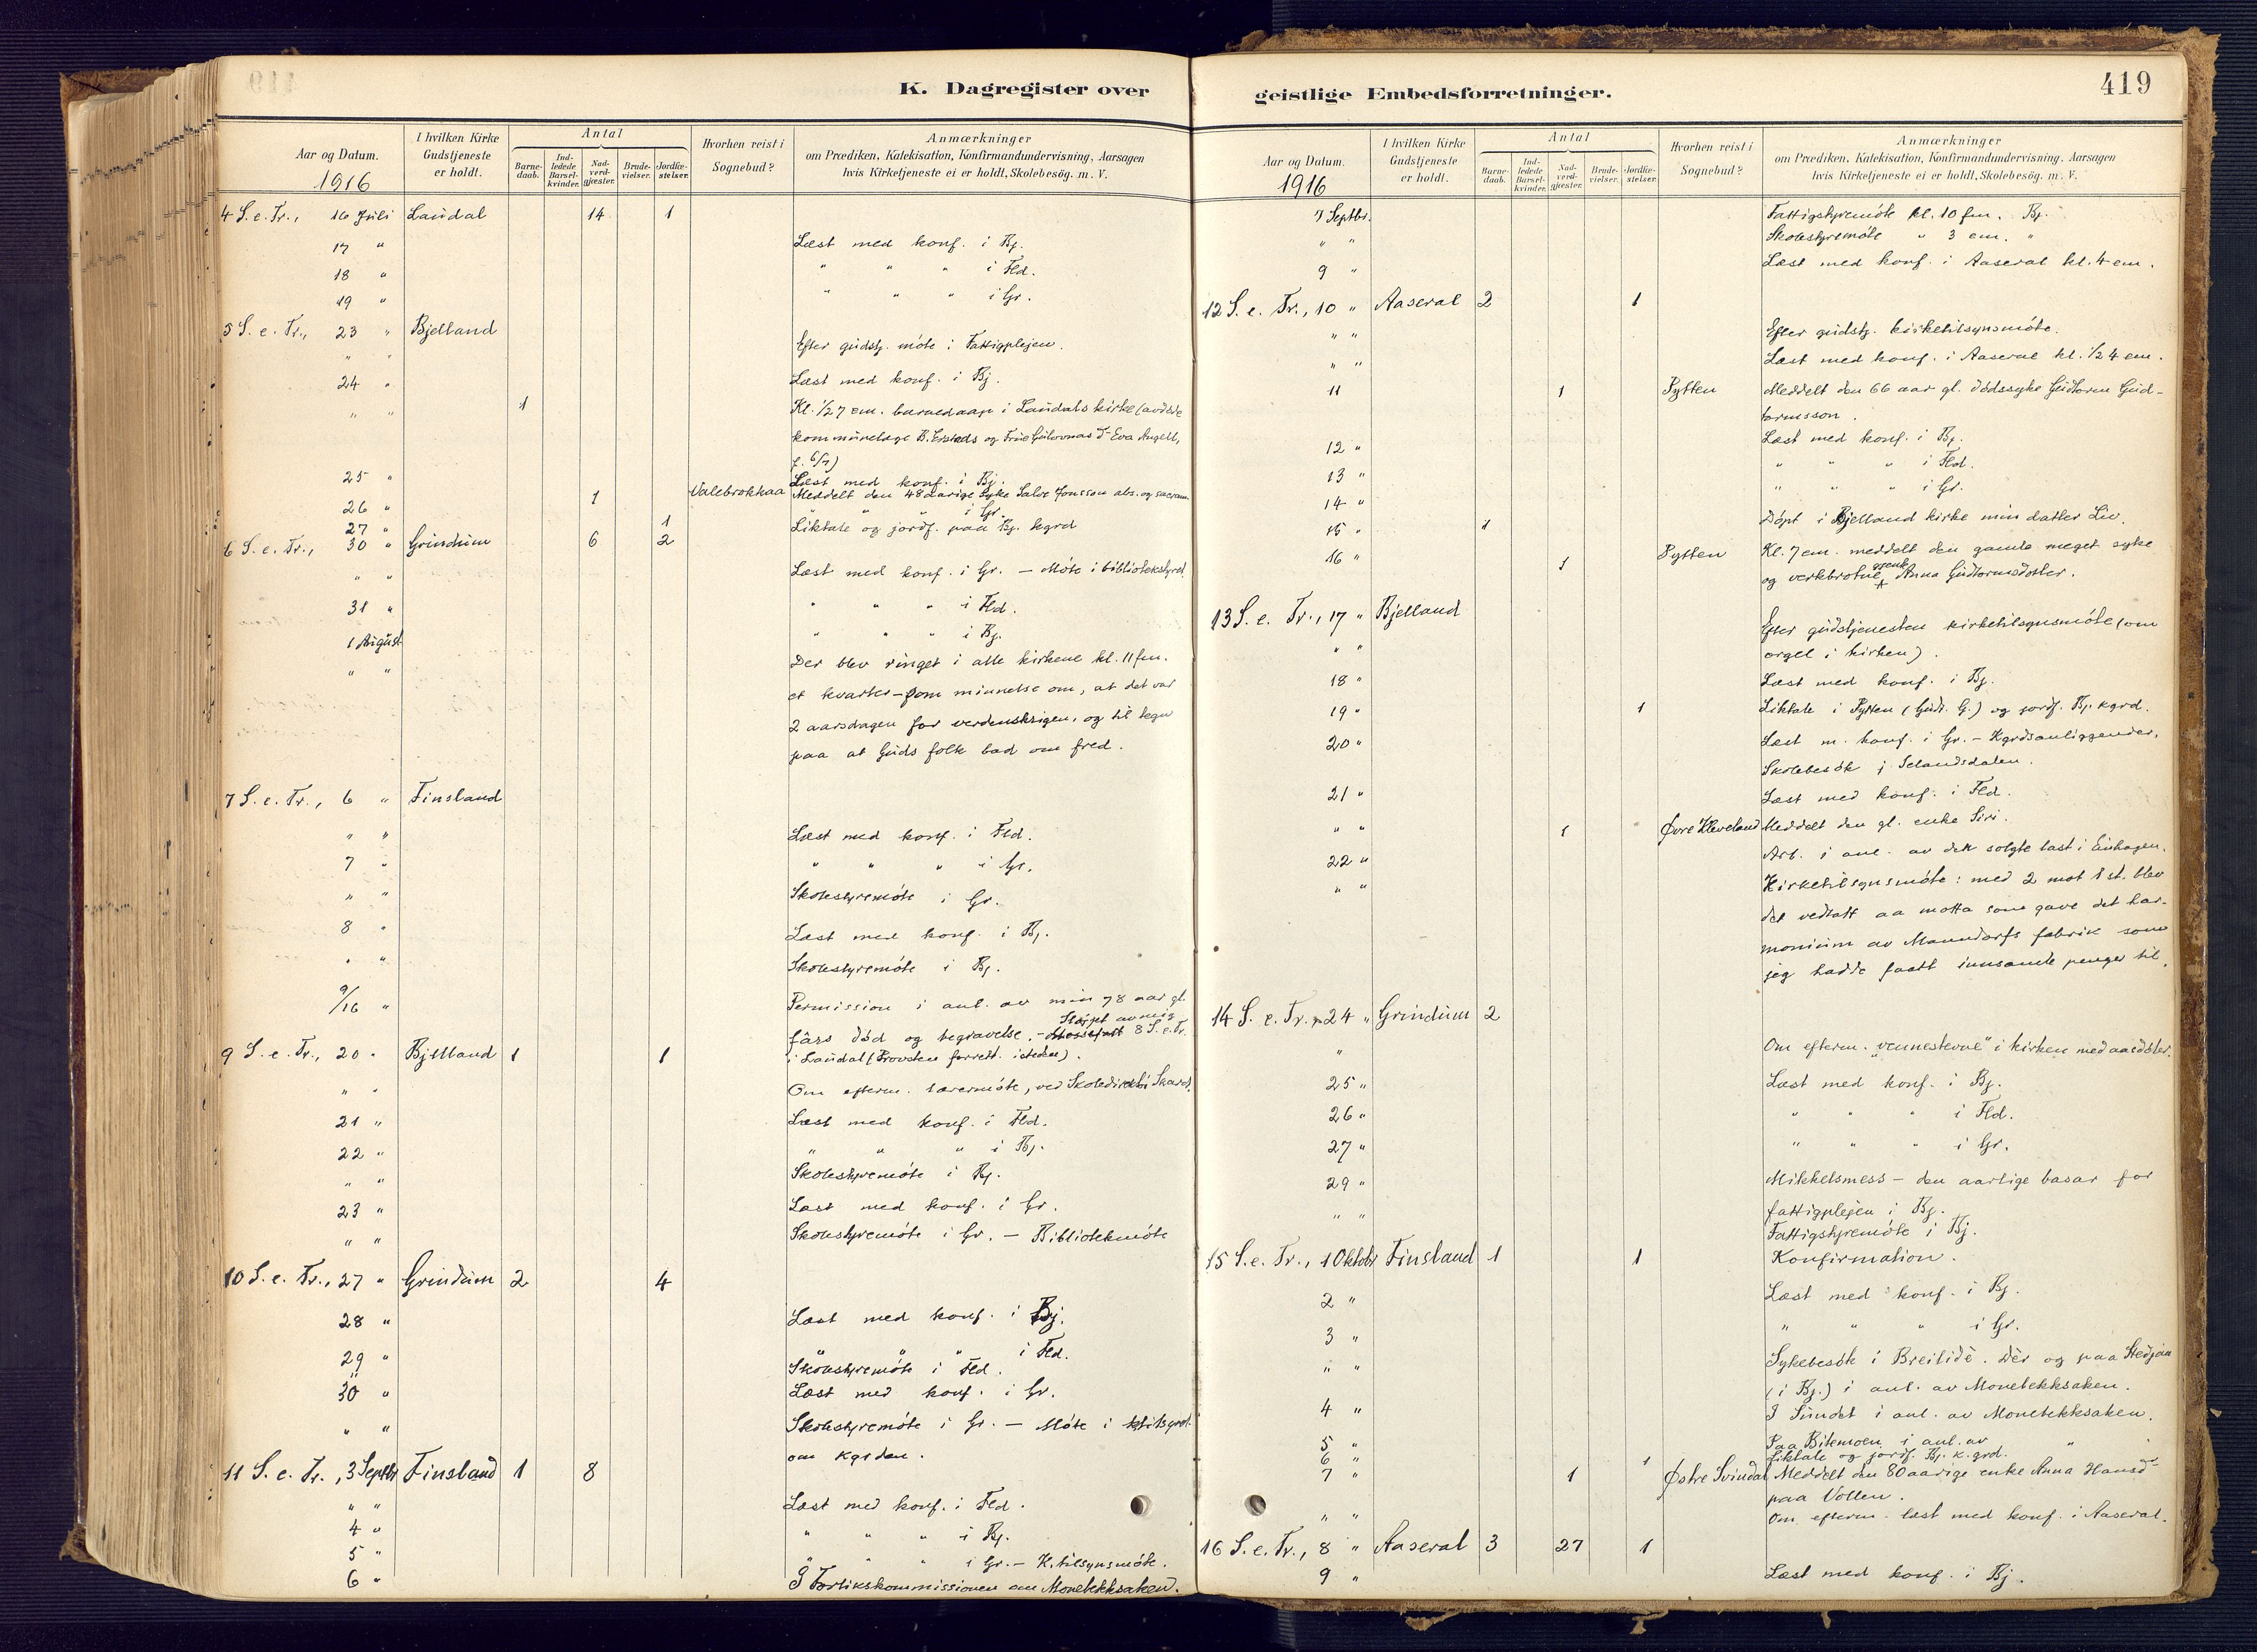 K. Dagregister over
Aar og Datum.
1916
I hvilken Kirke
Gudstjeneste
er holdt.
Antal
Barne-
daab.
Ind-
ledede
Barsel-
kvinder.
Nad-
verd-
gjæster.
Brude-
vielser.
Jordfæ-
stelser.
Hvorhen reist i
Sognebud?
Anmærkninger
om Prædiken, Katekisation, Konfirmandundervisning, Aarsagen
hvis Kirketjeneste ei er holdt, Skolebesög. m. V.
4 S. e. Tr., 16 Juli Laudal 14 1
17 " Læst med konf. i Bj.
18 " " " " i Fld.
19 " " " " i Gr.
5 S. e. Tr., 23 " Bjelland
" " Efter gudstj. möte i Fattigplejen.
24 " Læst med konf. i Bj.
" " 1 Kl. 1/2 7 em. barnedaap i Laudals kirke (avdöde
kommunelæge B. og Frue Gulovnas D- Eva Angell,
f. 6/7)
25 " Læst med konf. i Bj.
26 " 1 Valebrokkaa Meddelt den 48 aarige syke Salve Jonsson abs. og sacram.
" " " i Gr.
27 " 1 Liktale og jordf. paa Bj. kgrd
6 S. e. Tr., 30 " Grindum 6 2
" " Læst med konf. i Gr. – Möte i bibliotekstyret
31 " " " " i Fld.
1 August " " " i Bj.
" " Der blev ringet i alle kirkene kl. 11 fm.
et kvarter – som minnelse om, at det var
2 aarsdagen for verdenskrigen, og til tegn
paa at Guds folk bad om fred.
7 S. e. Tr., 6 " Finsland
" " Læst med konf. i Fld.
7 " " " " i Gr.
" " Skolestyremöte i Gr.
8 " Læst med konf. i Bj.
" " Skolestyremöte i Bj.
9/16 " Permission i anl. av min 78 aar gl.
fars död og begravelse. – Sløjpt av mig 8 S. e. Tr.
i Laudal (Provsten forrett. isteden).
9 S. e. Tr., 20 " Bjelland 1 1
" " Om efterm. lærermöte, ved Skoledirektör Skard.
21 " Læst med konf. i Fld.
22 " " " " i Bj.
" " Skolestyremöte i Bj.
23 " Læst med konf. i Gr.
" " Skolestyremöte i Gr. – Bibliotekmöte
10 S. e. Tr., 27 " Grindum 2 4
28 " Læst med konf. i Bj.
29 " " " " i Fld.
" Skolestyremöte i Fld.
30 " Læst med konf. i Gr.
" " Skolestyremöte i Gr. – Möte i
om kgrden.
11 S. e. Tr., 3 Septbr Finsland 1 8
" " Læst med konf. i Fld.
4 " " " " i Bj.
5 " " " " i Gr. – K. tilsynsmöte.
6 " I Forlikskommissionen om Monebekksaken.
geistlige Embedsforretninger.
419
Aar og Datum.
1916
I hvilken Kirke
Gudstjeneste
er holdt.
Antal
Barne-
daab.
Ind-
ledede
Barsel-
kvinder.
Nad-
verd-
gjæster.
Brude-
vielser.
Jordfæ-
stelser.
Hvorhen reist i
Sognebud?
Anmærkninger
om Prædiken, Katekisation, Konfirmandundervisning, Aarsagen
hvis Kirketjeneste ei er holdt, Skolebesög. m. V.
7 Septbr. Fattigstyremöte kl. 10 fm. Bj.
" " Skolestyremöte " 3 em. "
9 " Læst med konf. i Aaseral kl. 4 em.
12 S. e. Tr., 10 " Aaseral 2 1
" " Efter gudstj. kirketilsynsmöte.
" " Læst med konf. i Aaseral kl. 1/2 4 em.
11 1 Pytten Meddelt den 66 aar gl. dödssyke Gudtorm Gud-
tormsson.
12 " Læst med konf. i Bj.
13 " " " " i Fld.
14 " " " " i Gr.
15 " 1 Döpt i Bjelland kirke min datter Liv.
16 " 1 Pytten Kl. 7 em. meddelt den gamle meget syke
og verkbrotne Anna Gudtormsdotter.
13 S. e. Tr., 17 " Bjelland
" " Efter gudstjenesten kirketilsynsmöte (om
orgel i kirken).
18 " Læst med konf. i Bj.
19 " 1 Liktale i Pytten (Gudt. G.) og jordf. Bj. kgrd.
20 " Læst m. konf. i Gr. – Kgrdsanliggender.
Skolebesök i Selandsdalen.
21 " Læst med konf. i Fld.
" " 1 Øvre Kleveland Meddelt den gl. enke Siri.
22 " Arb. i anl. av den solgte last i Einhagen.
" " Kirketilsynsmöte: med 2 mot 1 st. blev
det vedtatt aa motta som gave det har-
monium av Manndorfs fabrik som
jeg hadde faatt innsamle penger til.
14 S. e. Tr. 24 " Grindum 2
" Om efterm. "vennestevne" i kirken med aasdöler.
25 " Læst med konf. i Bj.
26 " " " " i Fld.
27 " " " " i Gr.
29 " Mikkelsmess – den aarlige basar for
fattigplejen i Bj.
" " Fattigstyremöte i Bj.
15 S. e. Tr., 1 Oktobr Finsland 1 1 Konfirmation.
2 " Læst med konf. i Bj.
3 " " " " i Gr.
" " Sykebesök i Breilidè. Dèr og paa Stedjan
(i Bj.) i anl. av Monebekksaken.
4 " I Sundet i anl. av Monebekksaken.
5 " Paa Bitemoen i anl. av " "
6 " 1 Liktale og jordf. Bj. k.grd.
7 " 1 Østre Svindal Meddelt den 80 aarige enke Anna Hansd
paa Vollen.
" " Om efterm. læst med konf. i Aaseral.
16 S. e. Tr., 8 " Aaseral 3 27 1
9 " Læst med konf. i Bj.